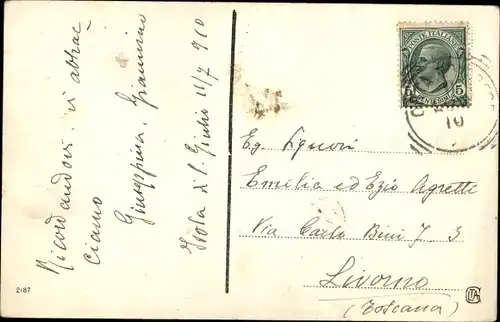 Ricordandovi, vi abbrac
ciamo
Giuseppina, Giannino
Isola di S. Giulio 11/7 910
POSTE ITALIANE
5 CENTESIMI 5
10
Eg. Signori
Emilia ed Ezio Agretti
Via Carlo Bini N. 3
Livorno
(Toscana)
2187